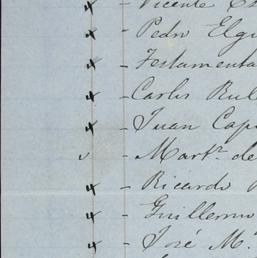 x - Vicente
x - Pedro
x - Testamenta
x - Carlos Rul
x - Juan Cap
v - Mart.ʳ de
x - Ricardo
x - Guillermo
x - José M.ª